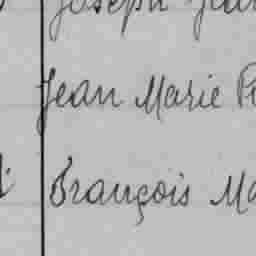 Joseph
Jean Marie
François